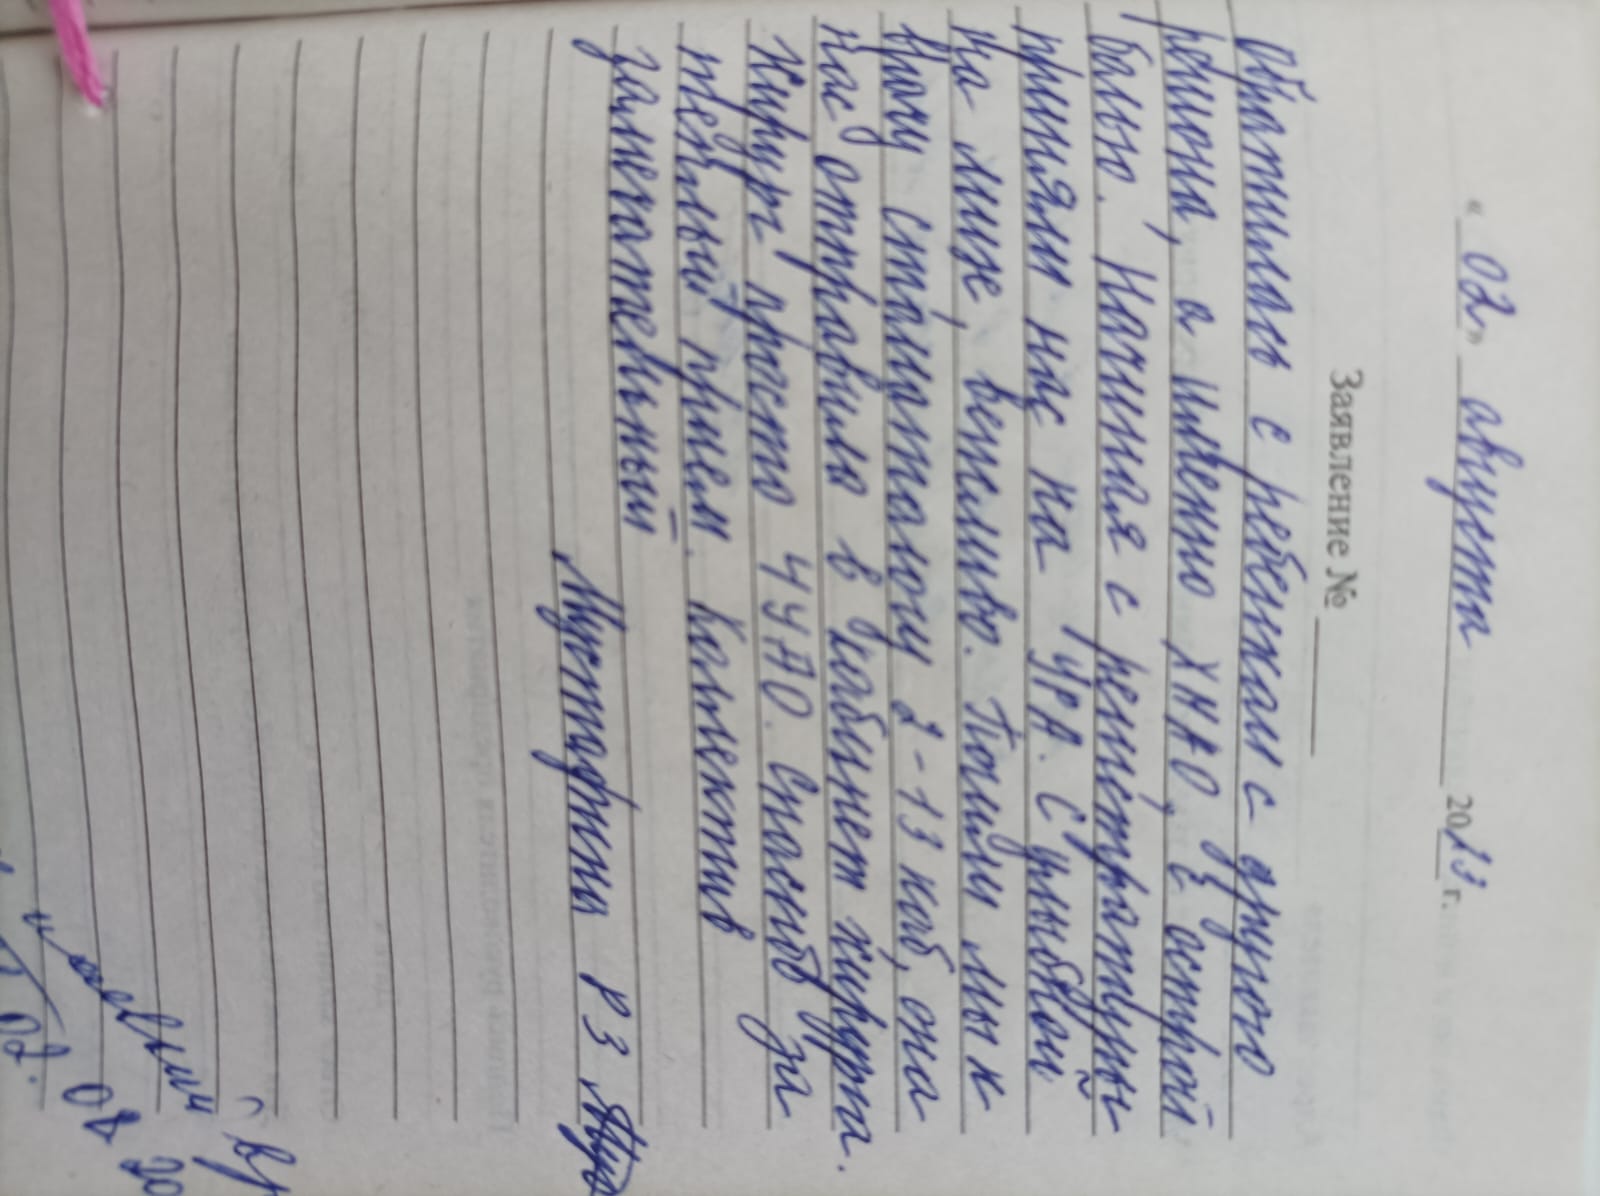 « 02 » августа 2023 г.
Заявление № ____
Обратилась с ребенком с другого
региона, а именно ХМАО, с острой
болью. Начиная с регистратуры
приняли нас на УРА. С улыбкой
на лице, вежливо. Пошли мы к
врачу стоматологу 2-13 каб, она
нас отправила в кабинет хирурга.
Хирург просто ЧУДО. Спасибо за
теплый прием. Коллектив
замечательный
Мустафина РЗ
вр
02.08.20